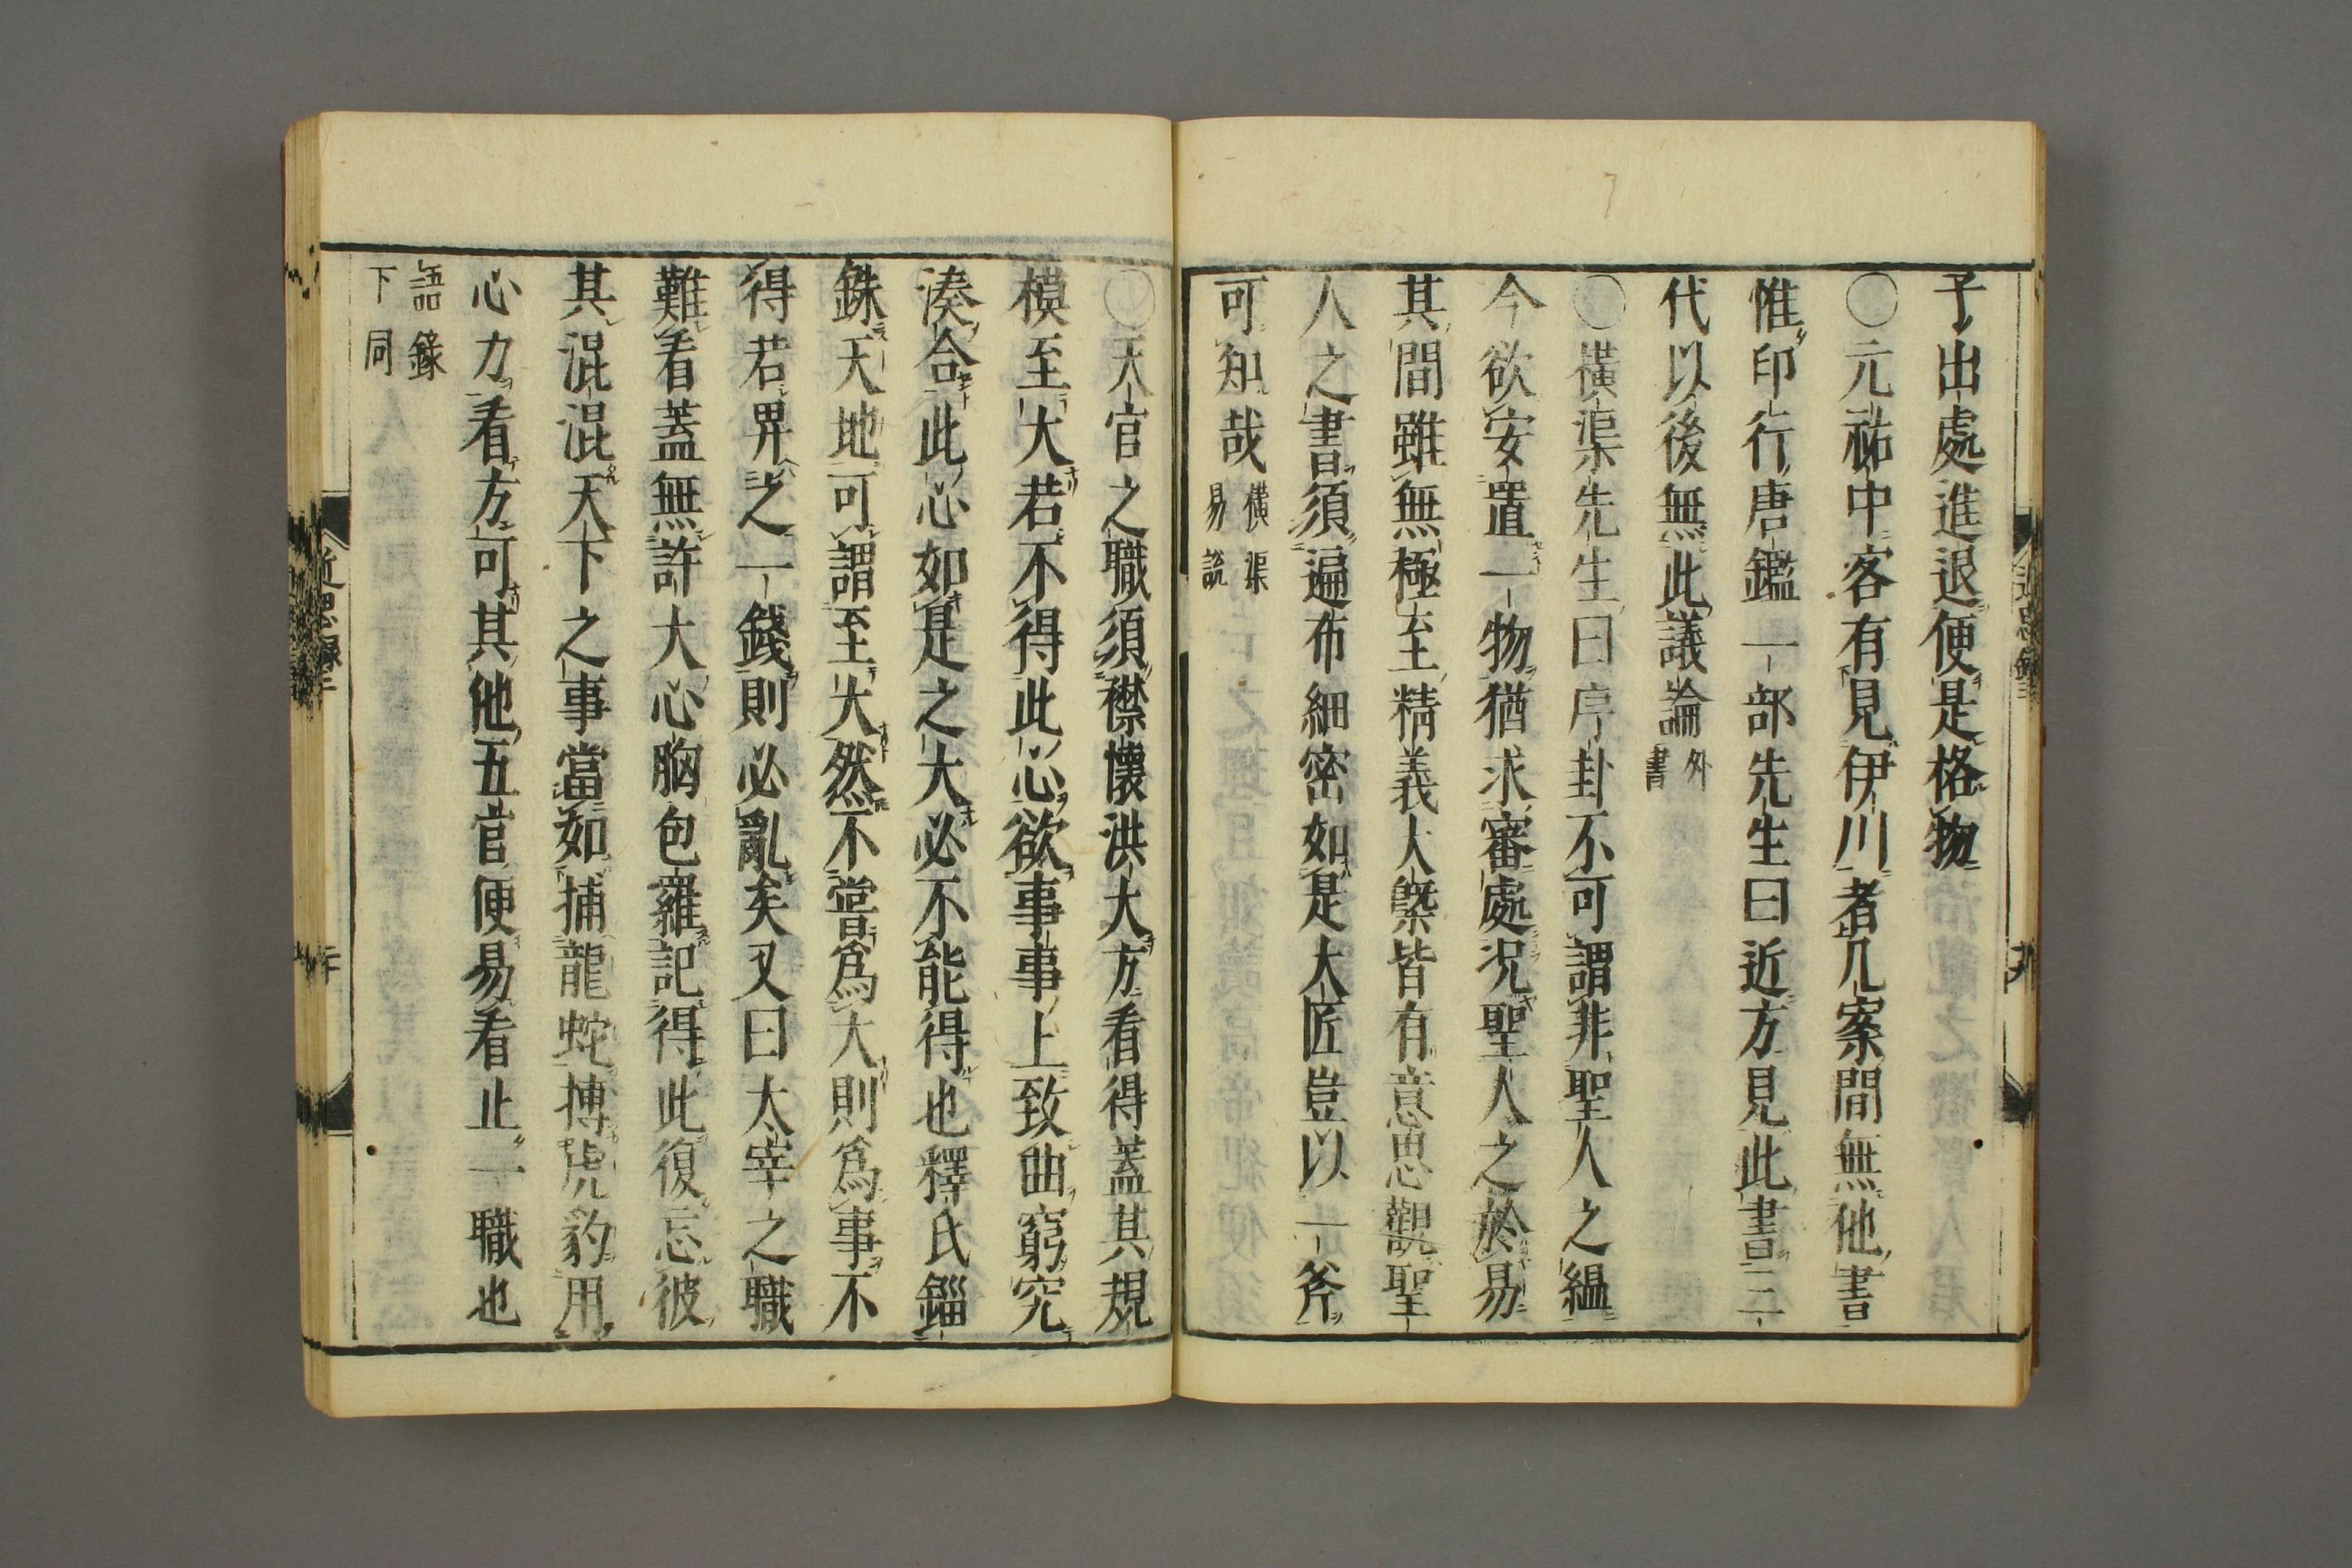 子出處進退便是格物
○元祐中客有見伊川者几案間無他書
惟印行唐鑑一部先生曰近方見此書三
代以後無此議論外書
○橫渠先生曰序卦不可謂非聖人之縕
今欲安置一物猶求審處況聖人之於易
其間雖無極至精義大槩皆有意思觀聖
人之書須遍布細密如是大匠豈以一斧
可知哉橫渠易說
○天官之職須襟懷洪大方看得蓋其規
模至大若不得此心欲事事上致曲窮究
湊合此心如是之大必不能得也釋氏錙
銖天地可謂至大然不嘗爲大則爲事不
得若畀之一錢則必亂矣又曰太宰之職
難看蓋無許大心胸包羅記得此復忘彼
其混混天下之事當如捕龍蛇搏虎豹用
心力看方可其他五官便易看止一職也
語錄下同
近思錄三